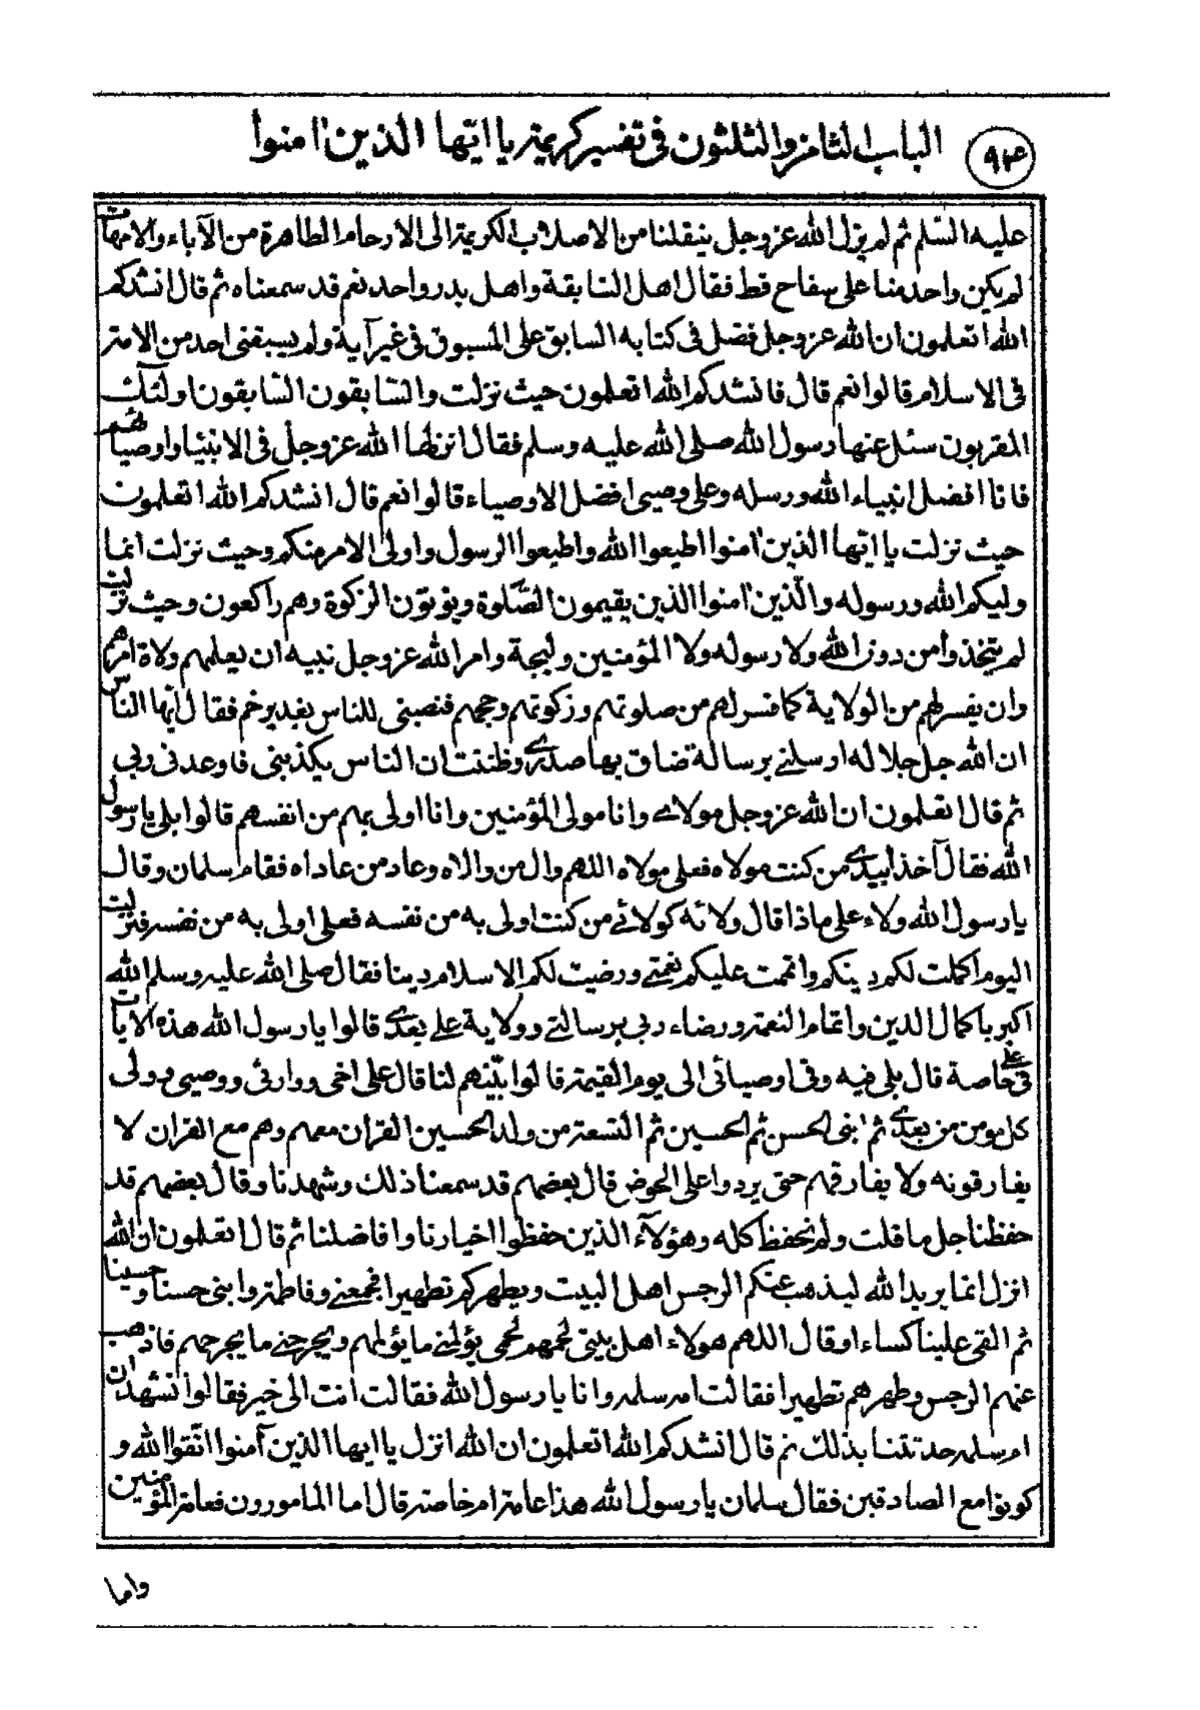 الباب الثامن والثلثون في تفسير كريمة يا ايّها الذين اٰمنوا
عليه السّلم ثم لم يزل الله عز وجل ينقلنا من الاصلاب الكريمة الى الارحام الطاهرة من الآباء والامهات
لم يكن واحد منا على سفاح قط فقال اهل السّابقة واهل بدر واحد نعم قد سمعناه ثم قال انشدكم
الله اتعلمون ان الله عز وجل فضل فى كتابه السابق على المسبوق فى غير آية ولم يسبقنى احد من الامة
فى الاسلام قالوا نعم قال فانشدكم الله اتعلمون حيث نزلت والسّابقون السّابقون اولٓئك
المقربون سئل عنها رسول الله صلى الله عليه وسلم فقال انزلها الله عز وجل فى الانبياء واوصيائهم
فانا افضل انبياء الله ورسله وعلى وصيى افضل الاوصياء قالوا نعم قال انشدكم الله اتعلمون
حيث نزلت يا ايّها الذين اٰمنوا اطيعوا الله واطيعوا الرسول واولى الامر منكم وحيث نزلت انما
وليكم الله ورسوله والّذين اٰمنوا الذين يقيمون الصّلوة ويؤتون الزكوة وهم راكعون وحيث نزلت
لم يتخذوا من دون الله ولا رسوله ولا المؤمنين وليجة وامر الله عز وجل نبيه ان يعلمهم ولاة امرهم
وان يفسر لهم من الولاية كما فسر لهم من صلوتهم وزكوتهم وحجهم فنصبنى للناس بغدير خم فقال ايّها الناس
ان الله جل جلاله ارسلنے برسالة ضاق بها صدرے وظننت ان الناس يكذبنى فاوعدنى ربى
ثم قال اتعلمون ان الله عز وجل مولاے وانا مولى المؤمنين وانا اولى بهم من انفسهم قالوا بلى يا رسول
الله فقال آخذا بيدے من كنت مولاه فعلى مولاه اللهم وال من والاه وعاد من عاداه فقام سلمان وقال
يا رسول الله ولاء على ماذا قال ولائه كولائے من كنت اولى به من نفسه فعلى اولى به من نفسه فنزلت
اليوم اكملت لكم دينكم واتممت عليكم نعمتے ورضيت لكم الاسلام دينا فقال صلى الله عليه وسلم الله
اكبر باكمال الدين واتمام النعمة ورضاء ربى برسالتے وولاية على بعدے قالوا يا رسول الله هذه الايات
فى على خاصة قال بلى فيه وفى اوصيائى الى يوم القيمة قالوا بيّنهم لنا قال على اخى ووارثى ووصيى وولى
كل مومن من بعدے ثم ابنى الحسن ثم الحسين ثم التسعة من ولد الحسين القران معهم وهم مع القران لا
يفارقونه ولا يفارقهم حتى يردوا على الحوض قال بعضهم قد سمعنا ذلك وشهدنا وقال بعضهم قد
حفظنا جل ما قلت ولم نحفظ كله وهؤلآء الذين حفظوا اخيارنا وافاضلنا ثم قال اتعلمون ان الله
انزل انما يريد الله ليذهب عنكم الرجس اهل البيت ويطهركم تطهيرا فجمعنے وفاطمة وابنى حسنا وحسينا
ثم القى علينا كساء او قال اللهم هولاء اهل بيتى لحمهم لحمى يؤلمنے ما يؤلمهم ويجرحنے ما يجرحهم فاذهب
عنهم الرجس وطهرهم تطهيرا فقالت ام سلمه وانا يا رسول الله فقالت انت الى خير فقالوا نشهد ان
ام سلمه حدثتنا بذلك ثم قال انشدكم الله اتعلمون ان الله انزل يا ايها الذين آمنوا اتّقوا الله و
كونوا مع الصادقين فقال سلمان يا رسول الله هذا عامة ام خاصة قال اما المامورون فعامة المؤمنين
واما